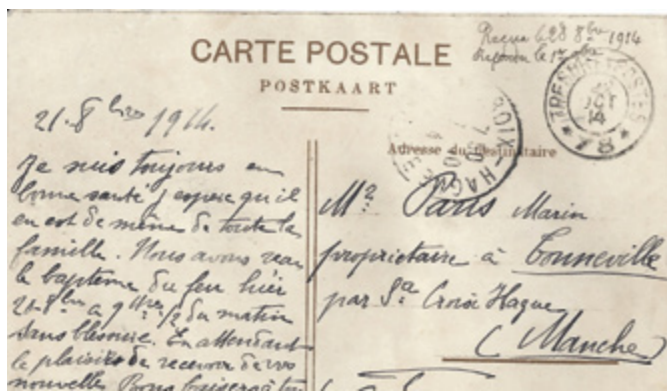 Reçu le 28 8bre 1914
Répondu le 1er
CARTE POSTALE
POSTKAART
TRESOR ET POSTES
OCT
14
* 78 *
CROIX HAGUE
21-8bre 1914.
Adresse du Destinataire
Je suis toujours en
bonne santé j'espère qu'il
en est de même de toute la
famille. Nous avons reçu
le baptême du feu hier
21-8bre à 9 hres 1/2 du matin
sans blessure. En attendant
le plaisir de recevoir de vos
nouvelles Bons baisers à tou
Mr Paris Marin
propriétaire à Tonneville
par Ste Croix Hague
(Manche)